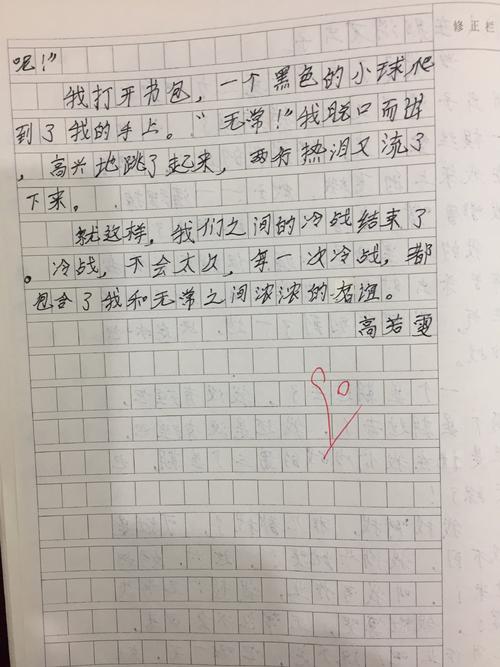 修正栏
呢!"
我打开书包,一个黑色的小球爬
到了我的手上。"无常!"我脱口而出
,高兴地跳了起来,两行热泪又流了
下来。
就这样,我们之间的冷战结束了
。冷战,不会太久,每一次冷战,都
包含了我和无常之间浓浓的友谊。
高若雯